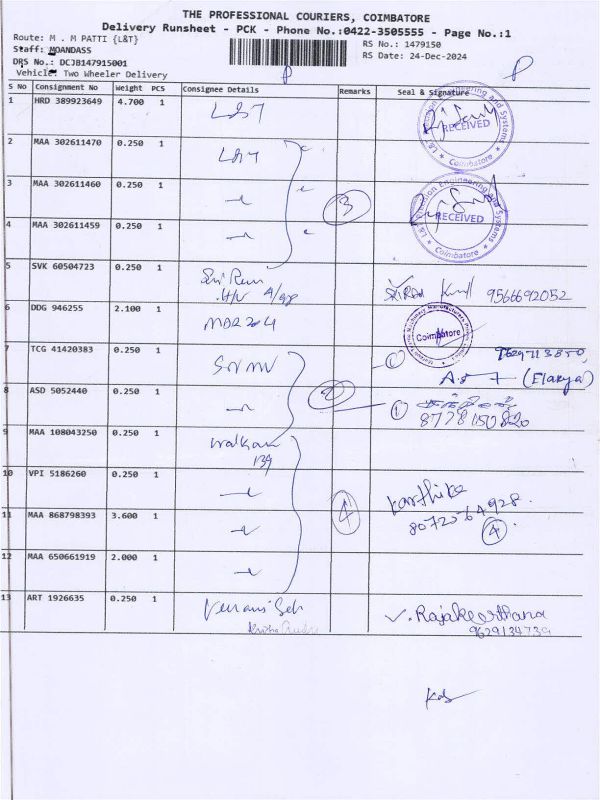 THE PROFESSIONAL COURIERS, COIMBATORE
Delivery Runsheet - PCK - Phone No.:0422-3505555 - Page No.:1
Route: M . M PATTI {L&T}
RS No.: 1479150
Staff: MOANDASS
RS Date: 24-Dec-2024
DRS No.: DCJB147915001
Vehicle: Two Wheeler Delivery
P
P
S No Consignment No Weight PCS Consignee Details Remarks Seal & Signature
1 HRD 389923649 4.700 1 L&T
RECEIVED
Coimbatore
2 MAA 302611470 0.250 1 L&T
3 MAA 302611460 0.250 1
3
RECEIVED
Coimbatore
4 MAA 302611459 0.250 1
5 SVK 60504723 0.250 1 Sri Ram
9566692052
6 DDG 946255 2.100 1
Coimbatore
7 TCG 41420383 0.250 1
1
(Elakya)
8 ASD 5052440 0.250 1
2
1
8778150820
9 MAA 108043250 0.250 1
139
10 VPI 5186260 0.250 1
Karthika
8072564928.
11 MAA 868798393 3.600 1
4
4
12 MAA 650661919 2.000 1
13 ART 1926635 0.250 1
V. Rajakeerthana
9629134739